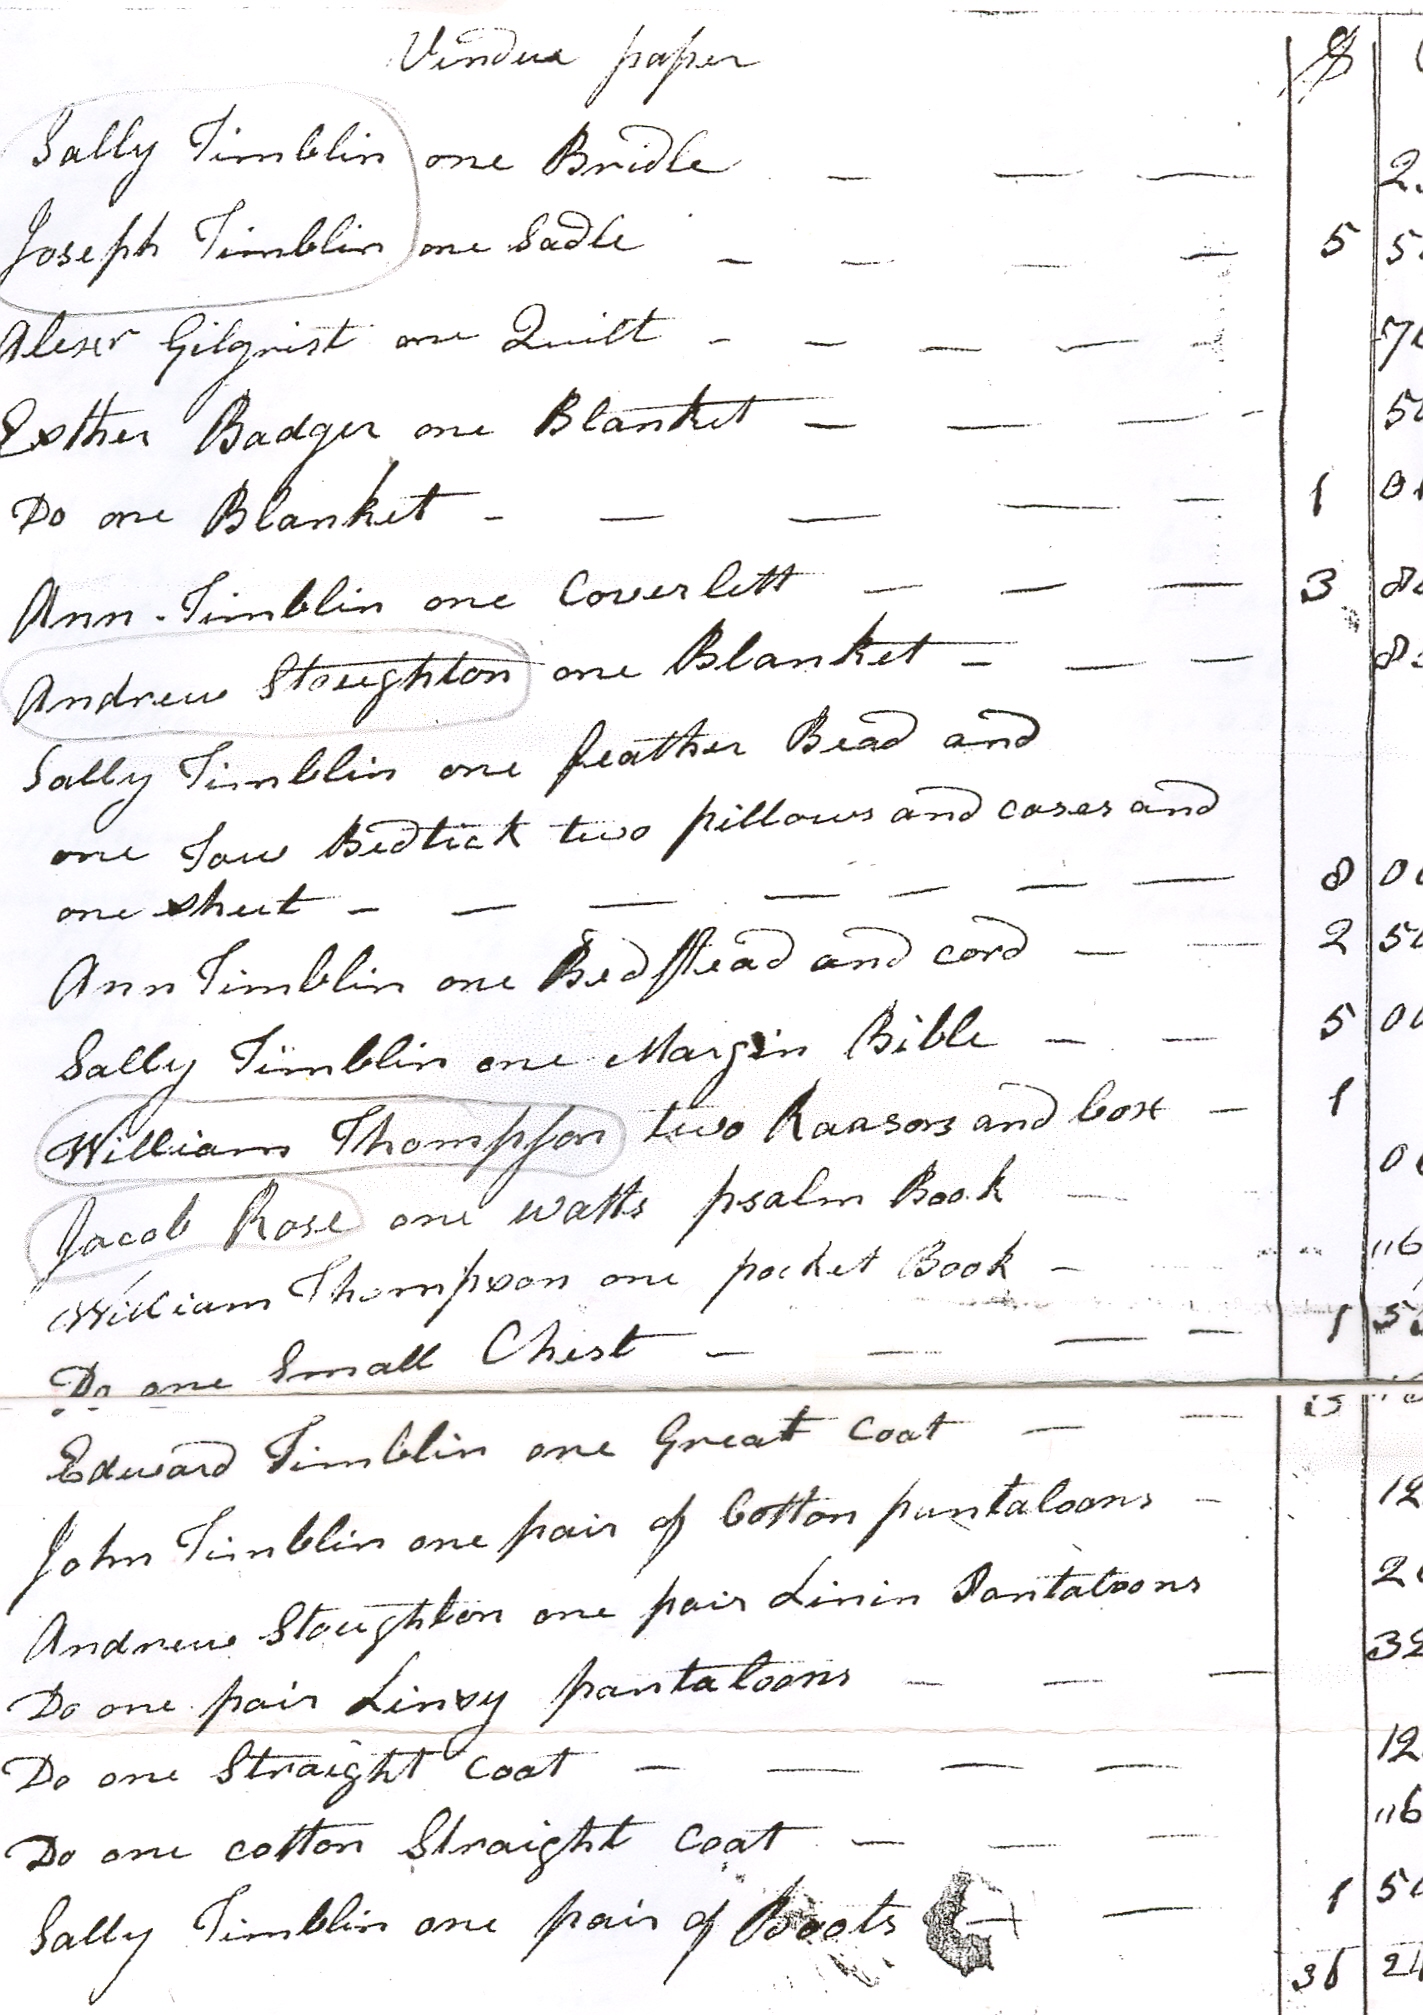 Vendue paper $
Sally Timblin one Bridle — — — 2
Joseph Timblin one Sadle — — — — 5 5
Alexr Gilgrist one Quilt — — — — —
Esther Badger one Blanket — — — - 50
Do one Blanket - — — — — 1 01
Ann Timblin one Coverlett — — — 3 8
Andrew Stoughton one Blanket — — — 8
Sally Timblin one feather Bead and
one Tow Bedtick two pillows and cases and
one sheet — — — — — — — 8 00
Ann Timblin one Bedstead and cord — — 2 50
Sally Timblin one Margin Bible — — 5 00
William Thompson two Raasors and box — 1
Jacob Rose one watts psalm Book — 0
William Thompson one pocket Book — "6
Do one Small Chest — — — — 1 5
Edward Timblin one Great Coat — —
John Timblin one pair of Cotton pantaloons — 12
Andrew Stoughton one pair Linin Pantaloons 2
Do one pair Linsy pantaloons — — — 32
Do one Straight Coat — — — — 12
Do one cotton Straight Coat — — — "6
Sally Timblin one pair of Boots — — 1 50
36 24